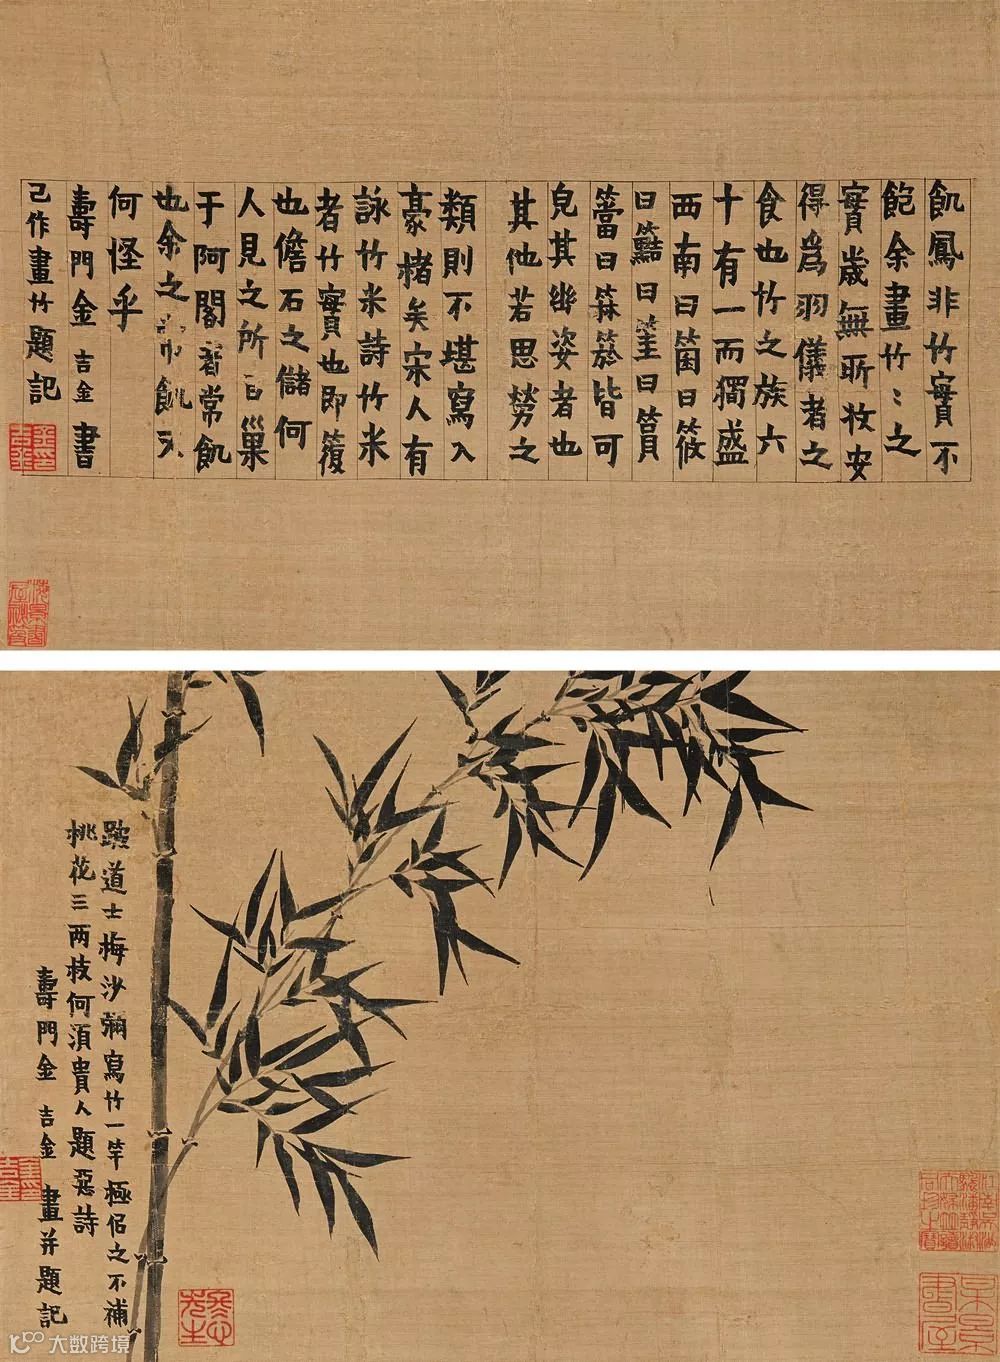 飢鳳非竹實不
飽余畫竹:之
實歲無所收安
得爲羽儀者之
食也竹之族六
十有一而獨盛
西南曰箘曰筱
曰䈏曰篁曰篔
簹曰箖箊皆可
皃其幽姿者也
其他若思簩之
類則不堪寫入
豪楮矣宋人有
詠竹米詩竹米
者竹實也即復
也儋石之儲何
人見之所
巢
于阿閣者常飢
也余之
飢
何怪乎
壽門金吉金書
己作畫竹題記
踆道士梅沙彌寫竹一竿極侣之不補
桃花三兩枝何須貴人題惡詩
壽門金吉金畫并題記
冬心先生
大数跨境